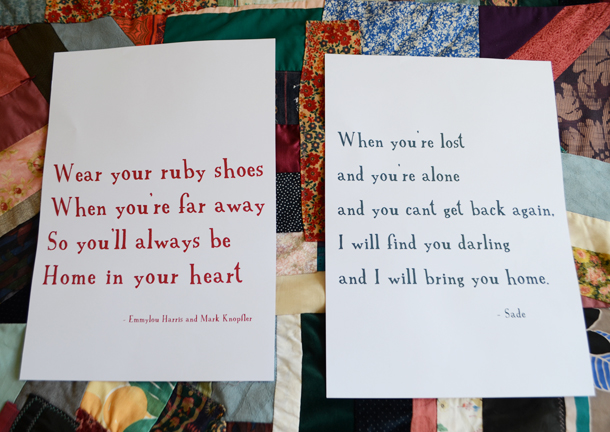 Wear your ruby shoes
When you're far away
So you'll always be
Home in your heart
- Emmylou Harris and Mark Knopfler
When you're lost
and you're alone
and you cant get back again,
I will find you darling
and I will bring you home.
- Sade